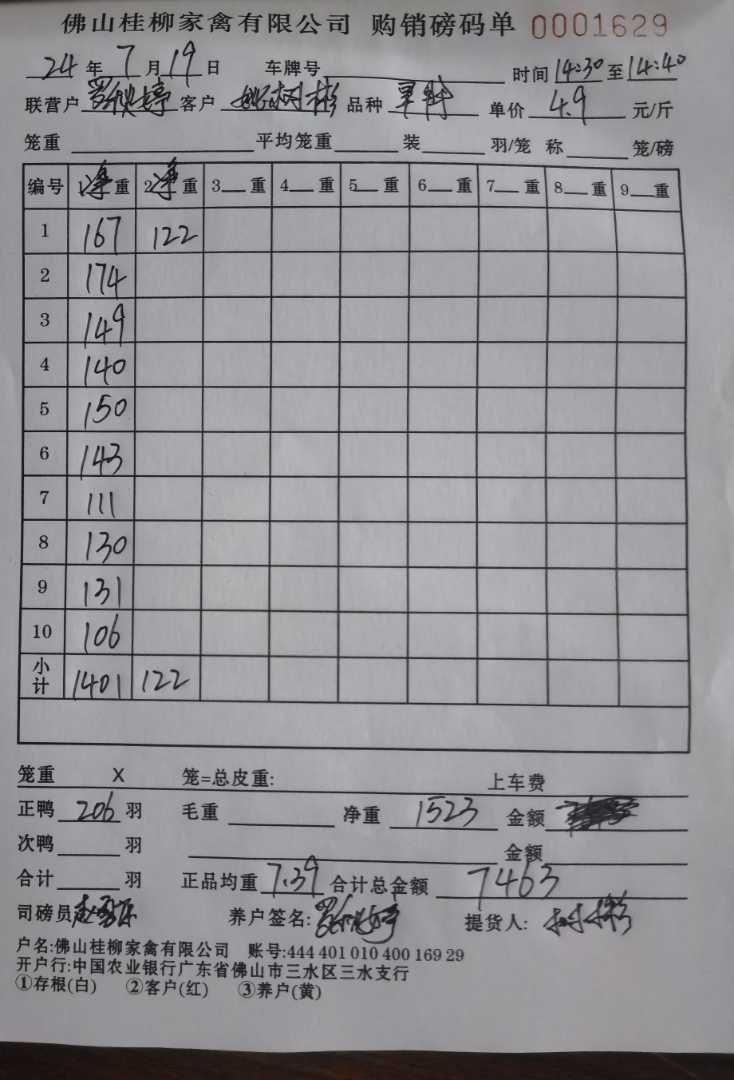 佛山桂柳家禽有限公司 购销磅码单 0001629
24 年 7 月 19 日 车牌号 时间 14:30 至 14:40
联营户 客户 树彬 品种 单价 4.9 元/斤
笼重 平均笼重 装 羽/笼 称 笼/磅
编号 1净重 2净重 3 重 4 重 5 重 6 重 7 重 8 重 9 重
1 167 122
2 174
3 149
4 140
5 150
6 143
7 111
8 130
9 131
10 106
小计 1401 122
笼重 X 笼=总皮重: 上车费
正鸭 206 羽 毛重 净重 1523 金额
次鸭 羽 金额
合计 羽 正品均重 7.39 合计总金额 7463
司磅员 养户签名: 提货人: 树彬
户名:佛山桂柳家禽有限公司 账号:444 401 010 400 169 29
开户行:中国农业银行广东省佛山市三水区三水支行
①存根(白) ②客户(红) ③养户(黄)